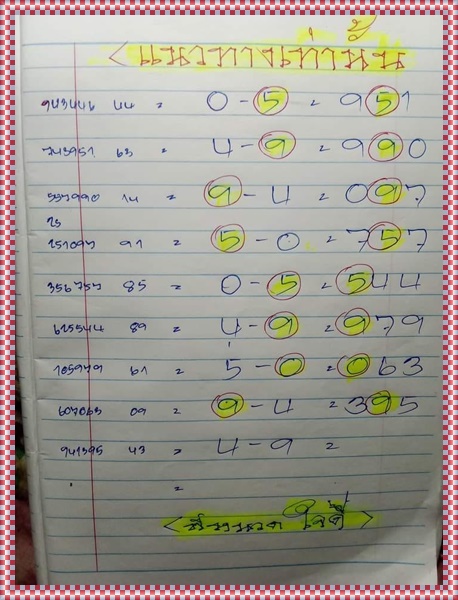 แนวทางเท่านั้น
943446 44 = 0 - 5 = 951
743951 63 = 4 - 9 = 990
557990 14 = 9 - 4 = 097
25
251097 91 = 5 - 0 = 757
356757 85 = 0 - 5 = 544
625544 89 = 4 - 9 = 979
105979 61 = 5 - 0 = 063
607063 09 = 9 - 4 = 395
941395 43 = 4 - 9 =
=